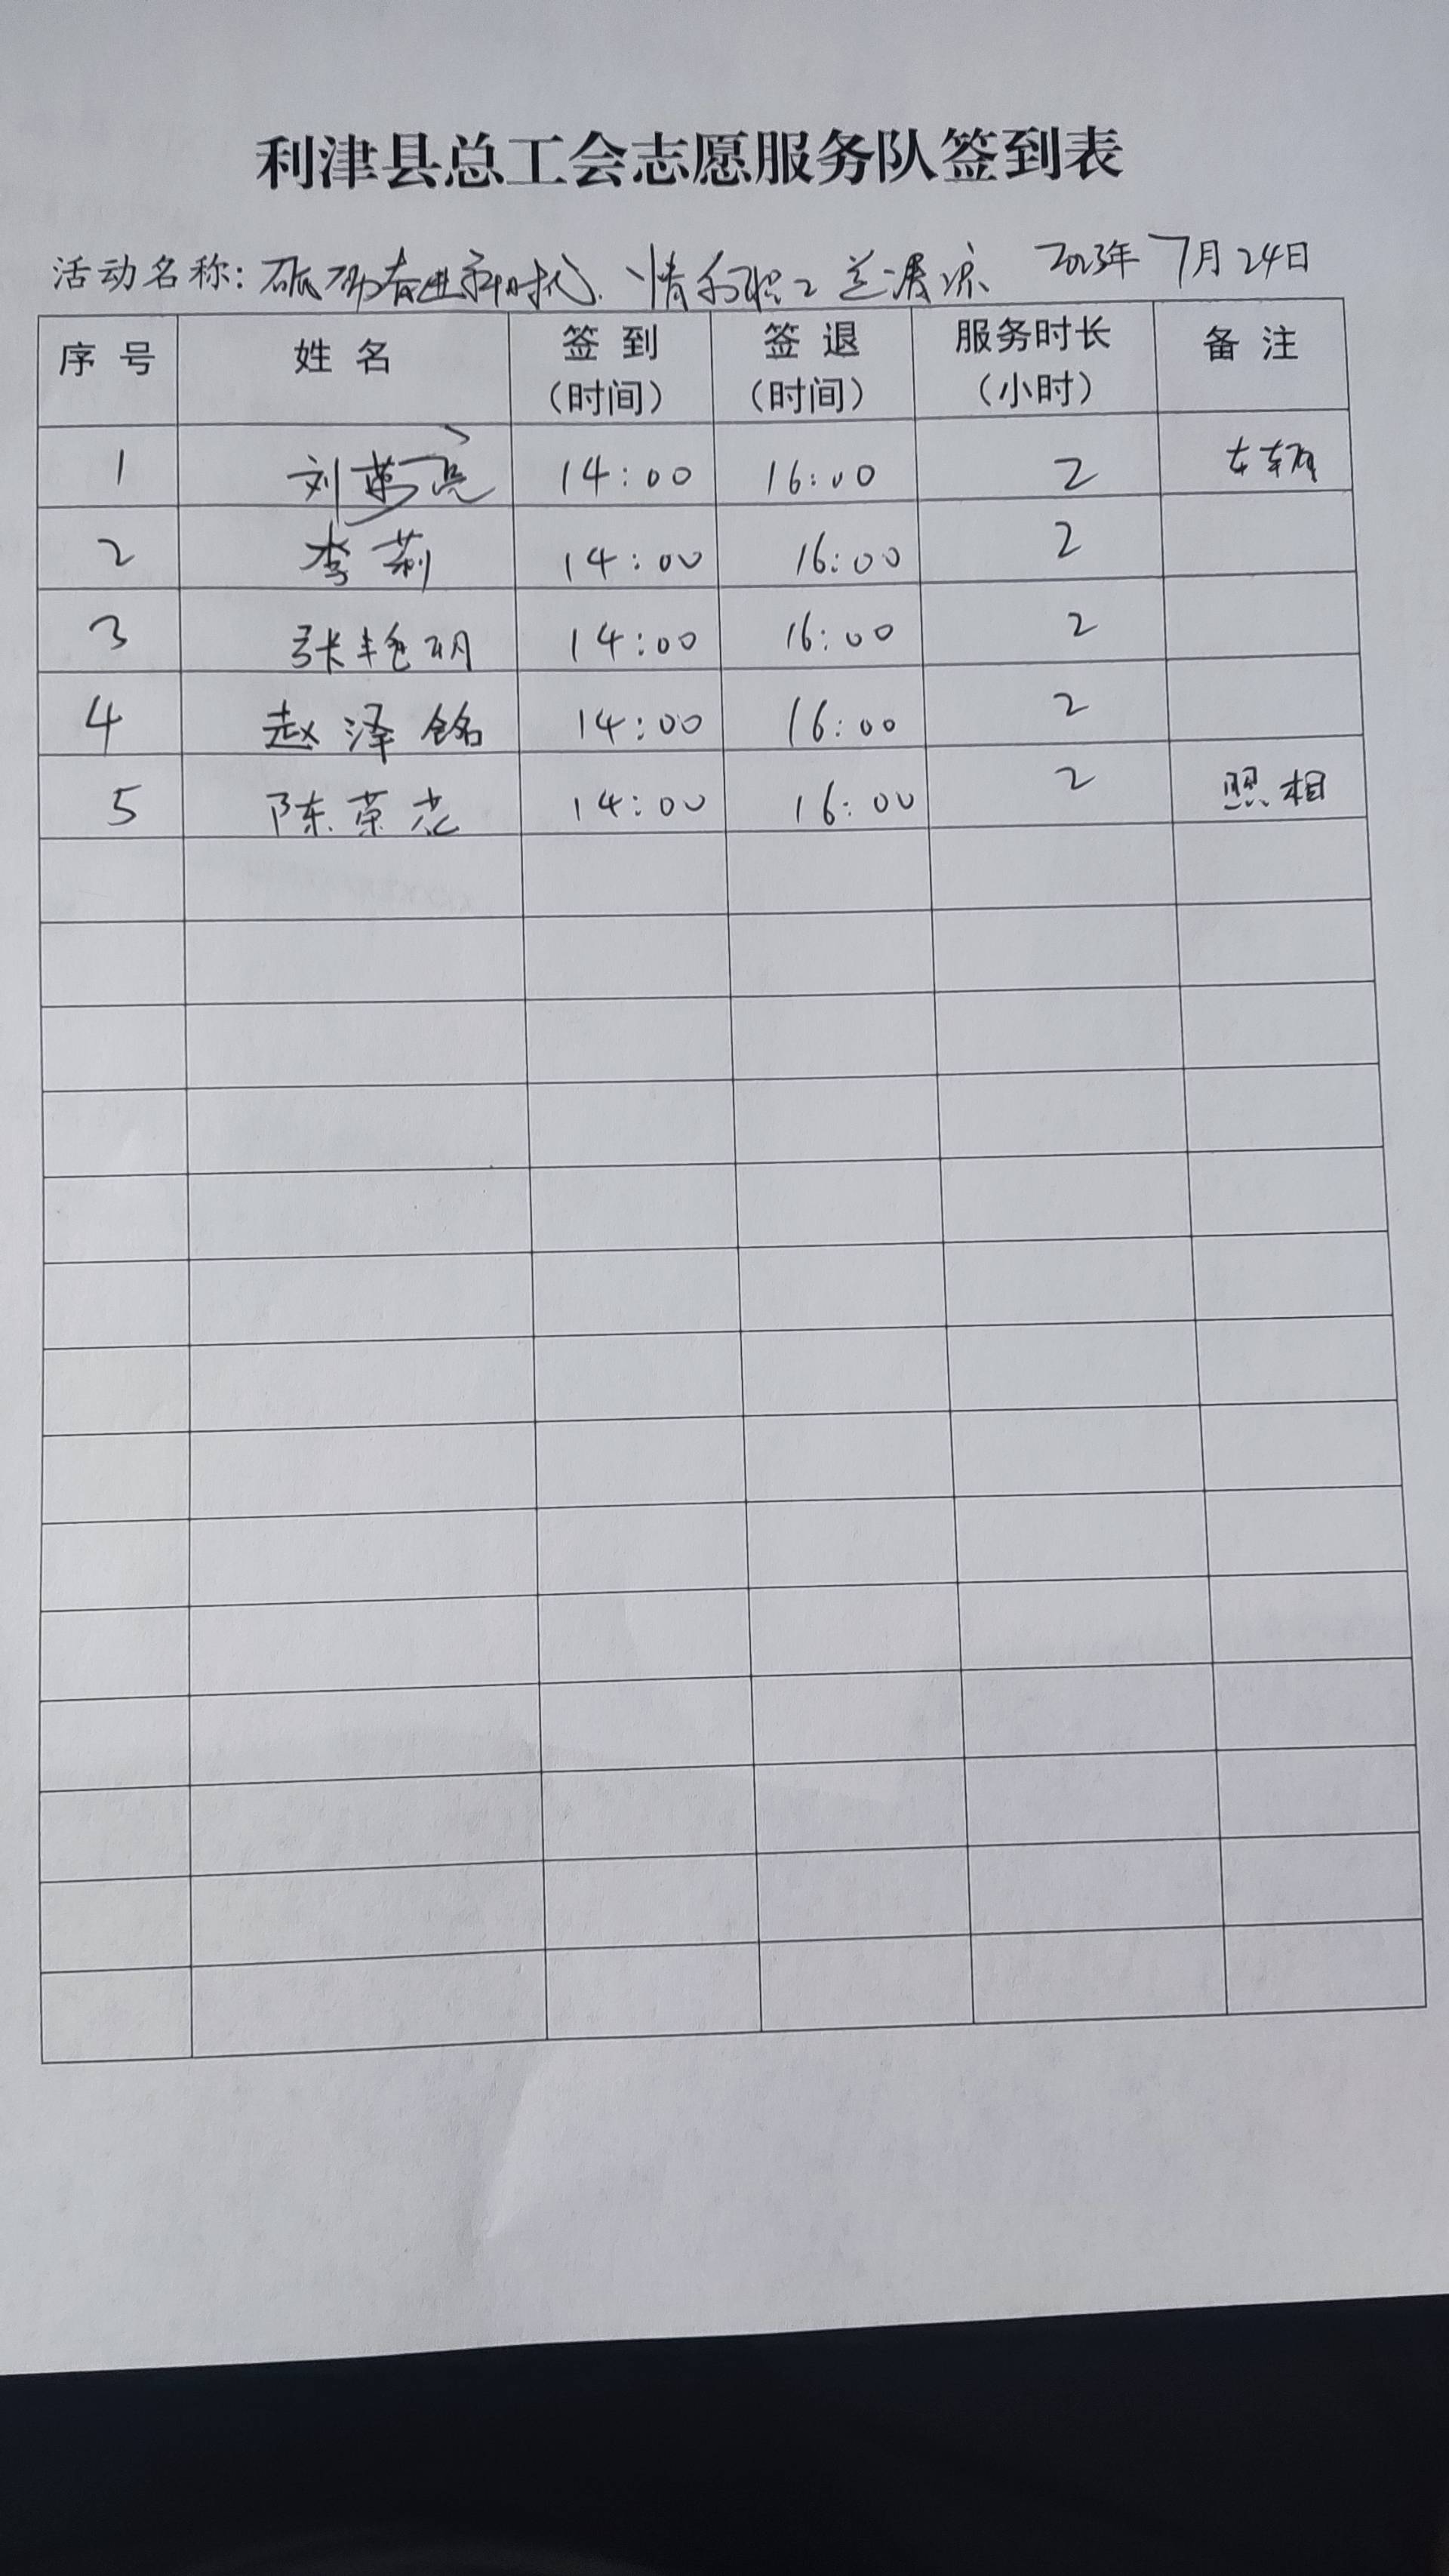 利津县总工会志愿服务队签到表
活动名称: 砥砺奋进新时代、情系职工送清凉 2023年 7月24日
序号 姓名 签到(时间) 签退(时间) 服务时长(小时) 备注
1 刘 亮 14:00 16:00 2 车辆
2 李莉 14:00 16:00 2
3 张艳明 14:00 16:00 2
4 赵泽铭 14:00 16:00 2
5 陈荣 14:00 16:00 2 照相